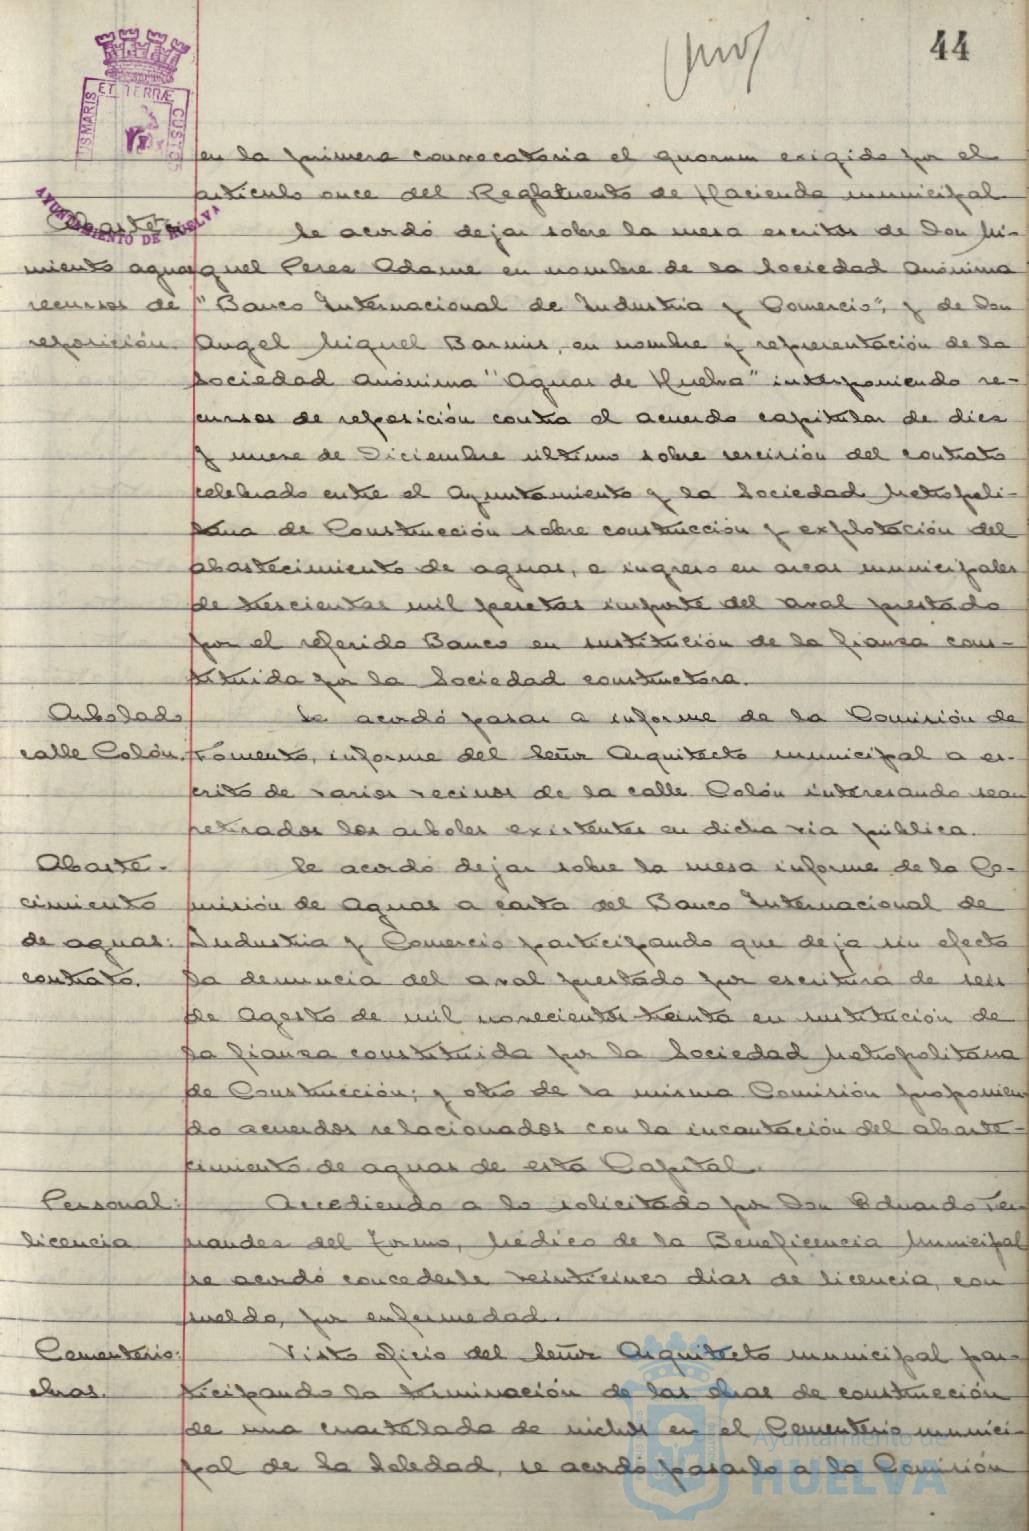 44
IS MARIS ET TERRÆ CUSTOS
AYUNTAMIENTO DE HUELVA
en la primera convocatoria el quorum exigido por el
artículo once del Reglamento de Hacienda municipal.
Abastecimiento aguas recursos de reposición.
Se acordó dejar sobre la mesa escritos de Don Mi-
guel Perez Adame en nombre de la Sociedad Anónima
"Banco Internacional de Industria y Comercio", y de Don
Angel Miguel en nombre y representación de la
Sociedad Anónima "Aguas de Huelva" interponiendo re-
cursos de reposición contra el acuerdo capitular de diez
y nueve de Diciembre último sobre rescisión del contrato
celebrado entre el Ayuntamiento y la Sociedad Metropoli-
tana de Construcción sobre construcción y explotación del
abastecimiento de aguas, e ingreso en arcas municipales
de trescientas mil pesetas importe del aval prestado
por el referido Banco en sustitución de la fianza cons-
tituida por la Sociedad constructora.
Arbolado
calle Colón.
Se acordó pasar a informe de la Comisión de
Fomento, informe del Señor Arquitecto municipal a es-
crito de varios vecinos de la calle Colón interesando sean
retirados los arboles existentes en dicha via pública.
Abaste-
cimiento
de aguas:
contrato.
Se acordó dejar sobre la mesa informe de la Co-
misión de Aguas a carta del Banco Internacional de
Industria y Comercio participando que deja sin efecto
la denuncia del aval prestado por escritura de seis
de Agosto de mil novecientos treinta en sustitución de
la fianza constituida por la Sociedad Metropolitana
de Construcción; y otro de la misma Comisión proponien-
do acuerdos relacionados con la incautación del abaste-
cimiento de aguas de esta Capital.
Personal:
licencia
Accediendo a lo solicitado por Don Eduardo Fer-
nandez del Torno, Médico de la Beneficencia Municipal
se acordó concederle veinticinco dias de licencia, con
sueldo, por enfermedad.
Cementerio:
obras.
Visto oficio del Señor Arquitecto municipal par-
ticipando la terminación de las obras de construcción
de una cuartelada de nichos en el Cementerio munici-
pal de la Soledad, se acordó pasarlo a la Comisión
Ayuntamiento de
HUELVA